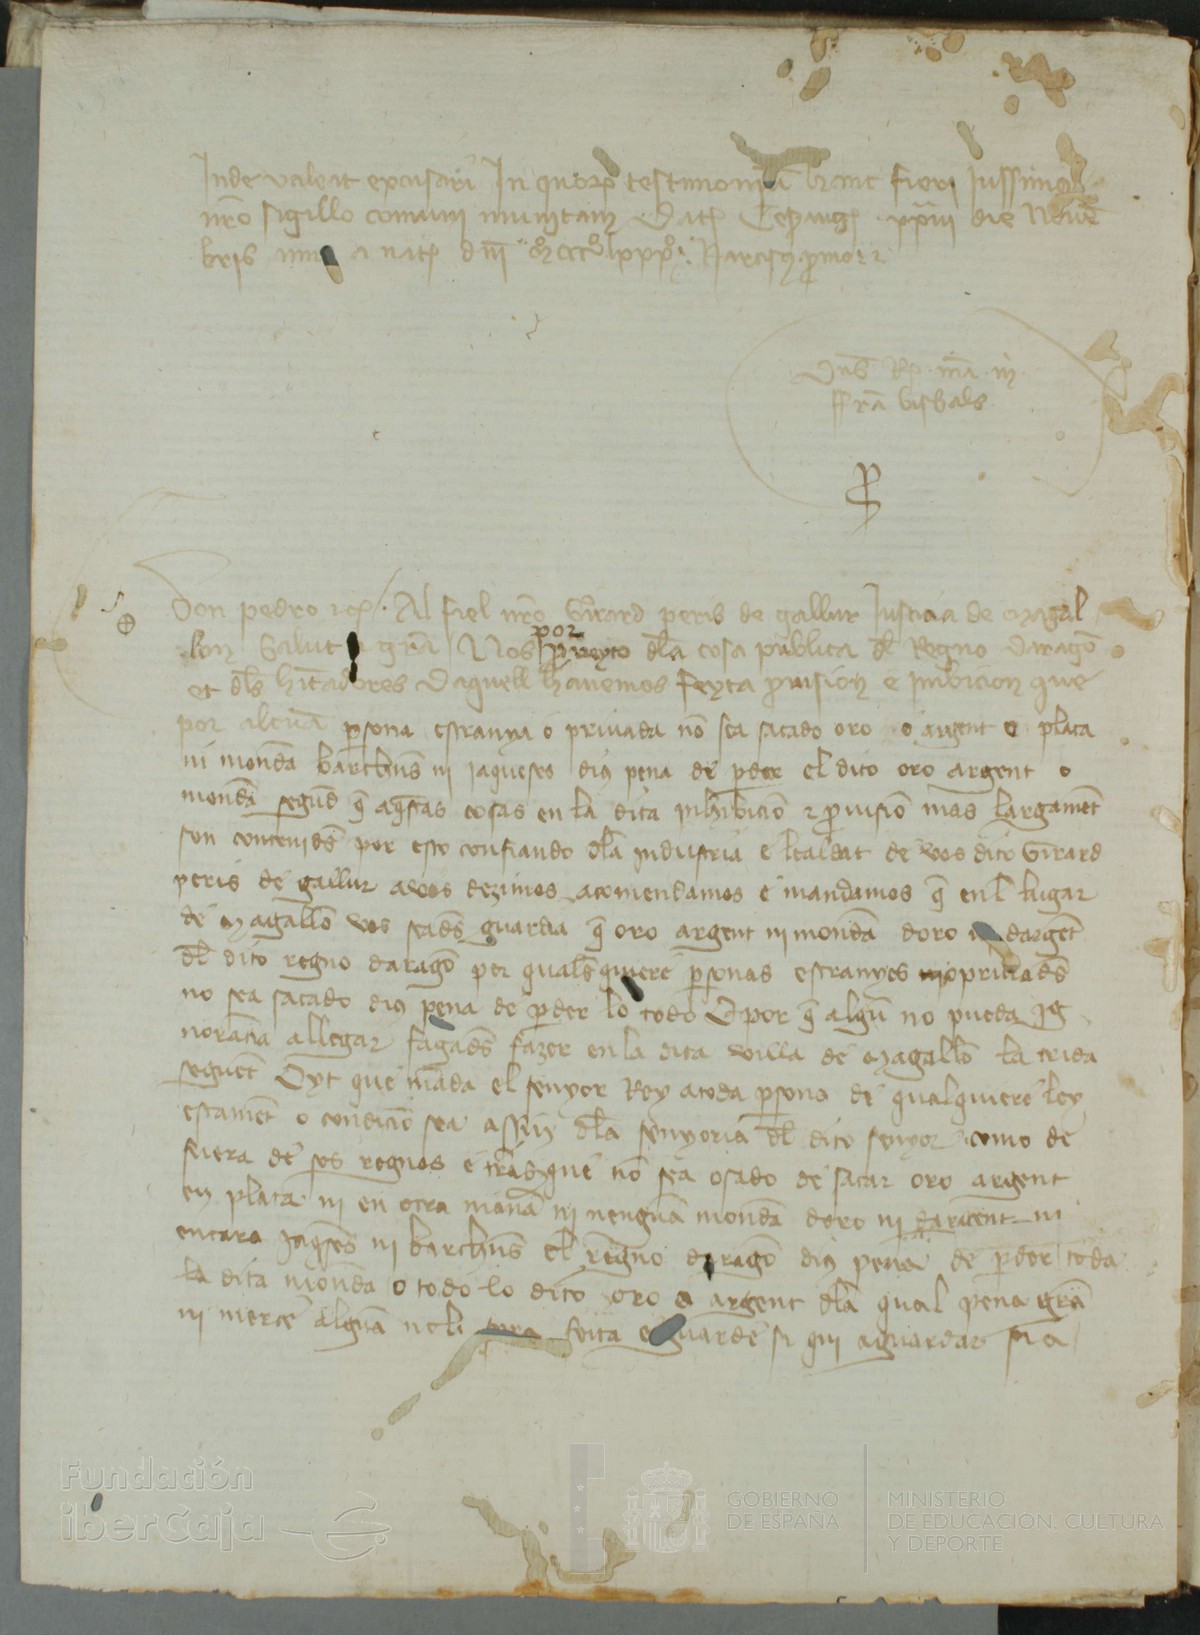 Inde valeat excusari In quorum testimonium hanc fieri Jussimus
nro sigillo comuni munitam Dat Cesarauguste die Novē
bris a nat dni Narcisus promor
Dns Rex mā m
ffrā
Don pedro etc. Al fiel nro Girard peris de gallur Justicia de Magal
lon Salut e grā Nos por proveyto dla cosa publica dl Regno daragō
et dls hitadores daquell havemos feyta provision e inibicion que
por alcuā persona estranya o privada nō sea sacado oro o argent e placa
ni moneda barchns ni jaqueses dius pena de perder el dito oro argent o
moneda segud q aqstas cosas en la dita inhibiciō e provisiō mas largament
son contenids por esto confiando dla industria e lealdat de vos dito Girard
peris de gallur a vos dezimos acomendamos e mandamos q enl lugar
de Magallō vos seads guarda q oro argent ni moneda doro dargēt
dl dito regno daragō per quals quiere personas estranyes o privads
no sea sacado dius pena de perder lo todo E por q algū no pueda ig
norācia allegar fagads fazer en la dita villa de Magallō la crida
seguēt Oyt que māda el senyor Rey a toda persona de qualquiere ley
estament o condiciō sea assin dla senyoria dl dito senyor como de
fuera de sos regnos e trās que nō sea osado de sacar oro argent
en placa ni en otra manā ni nenguā moneda doro ni dargent ni
encara jaqses ni barchns el regno daragō dius pena de perder toda
la dita moneda o todo lo dito oro o argent dla qual pena grā
ni merce alguā noli sera feita e guarde si qui aguardar sia
Fundación
iberCaja
GOBIERNO
DE ESPAÑA
MINISTERIO
DE EDUCACIÓN, CULTURA
Y DEPORTE